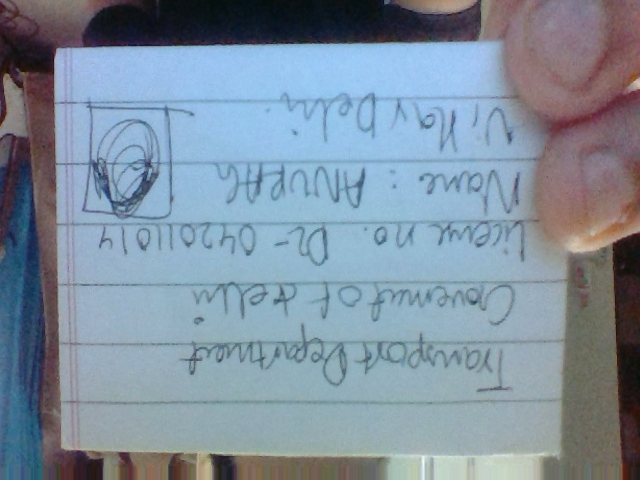 Transport Department
Goverment of delhi
License no. DL- 042011014
Name : ANURAG
Vihar Delhi.